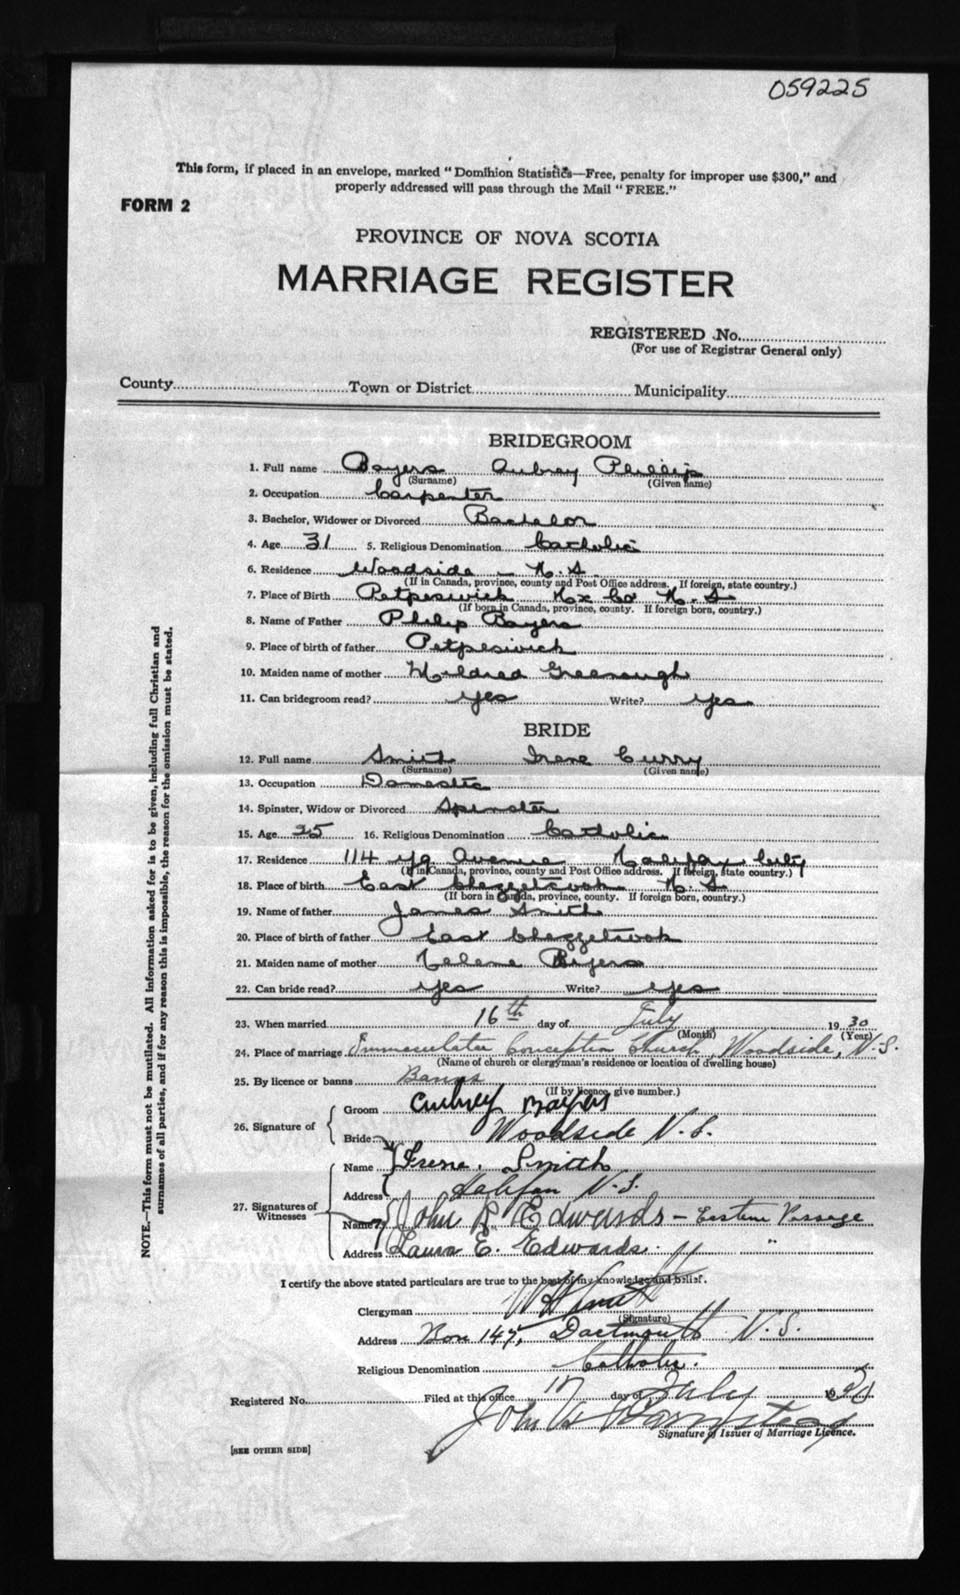 059225
This form, if placed in an envelope, marked "Dominion Statistics—Free, penalty for improper use $300," and
properly addressed will pass through the Mail "FREE."
FORM 2
PROVINCE OF NOVA SCOTIA
MARRIAGE REGISTER
REGISTERED No.
(For use of Registrar General only)
County Town or District Municipality
BRIDEGROOM
1. Full name Bayers Aubrey Phillip
(Surname) (Given name)
2. Occupation Carpenter
3. Bachelor, Widower or Divorced Bachelor
4. Age 31 5. Religious Denomination Catholic
6. Residence Woodside - N.S.
(If in Canada, province, county and Post Office address. If foreign, state country.)
7. Place of Birth Petpeswick Hx Co N.S.
(If born in Canada, province, county. If foreign born, country.)
8. Name of Father Philip Bayers
9. Place of birth of father Petpeswick
10. Maiden name of mother Mildred Greenough
11. Can bridegroom read? yes Write? yes
BRIDE
12. Full name Smith Irene Curry
(Surname) (Given name)
13. Occupation Domestic
14. Spinster, Widow or Divorced Spinster
15. Age 25 16. Religious Denomination Catholic
17. Residence 114 Avenue Halifax City
(If in Canada, province, county and Post Office address. If foreign, state country.)
18. Place of birth East Chezzetcook N.S.
(If born in Canada, province, county. If foreign born, country.)
19. Name of father James Smith
20. Place of birth of father East Chezzetcook
21. Maiden name of mother Bayers
22. Can bride read? yes Write? yes
23. When married 16th day of July 1930
(Month) (Year)
24. Place of marriage Immaculate Conception Church, Woodside, N.S.
(Name of church or clergyman's residence or location of dwelling house)
25. By licence or banns Banns
(If by licence, give number.)
26. Signature of Groom Aubrey Bayers
Bride Woodside N.S.
27. Signatures of Witnesses Name Irene Smith
Address Halifax N.S.
Name John R Edwards - Eastern Passage
Address Laura E. Edwards "
I certify the above stated particulars are true to the best of my knowledge and belief.
Clergyman Smith
(Signature)
Address Box 147, Dartmouth N.S.
Religious Denomination Catholic.
Registered No. Filed at this office 17 day of July 1930
John
Signature of Issuer of Marriage Licence.
[SEE OTHER SIDE]
NOTE.—This form must not be mutilated. All information asked for is to be given, including full Christian and
surnames of all parties, and if for any reason this is impossible, the reason for the omission must be stated.